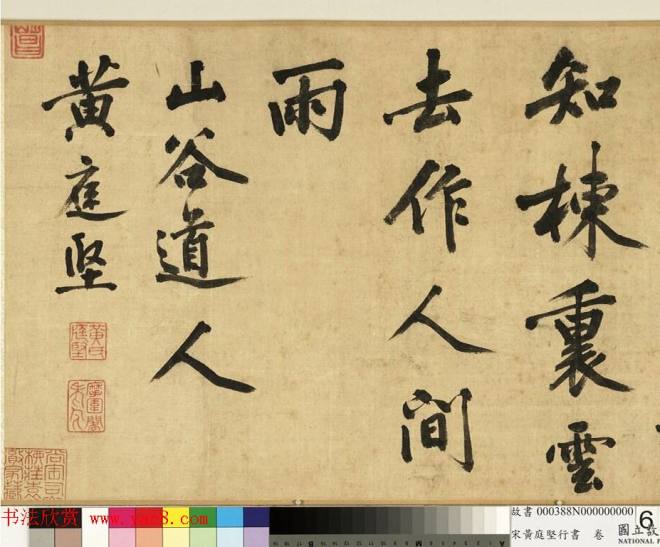 知棟裏雲
去作人間
雨
山谷道人
黄庭堅
黄氏
庭堅
書法欣赏
www.yac8.com
故書 000388N000000000
宋黃庭堅行書 卷
6
國立故
NATIONAL P